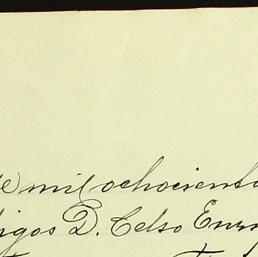 de mil ochocient
igos D. Celso Enr